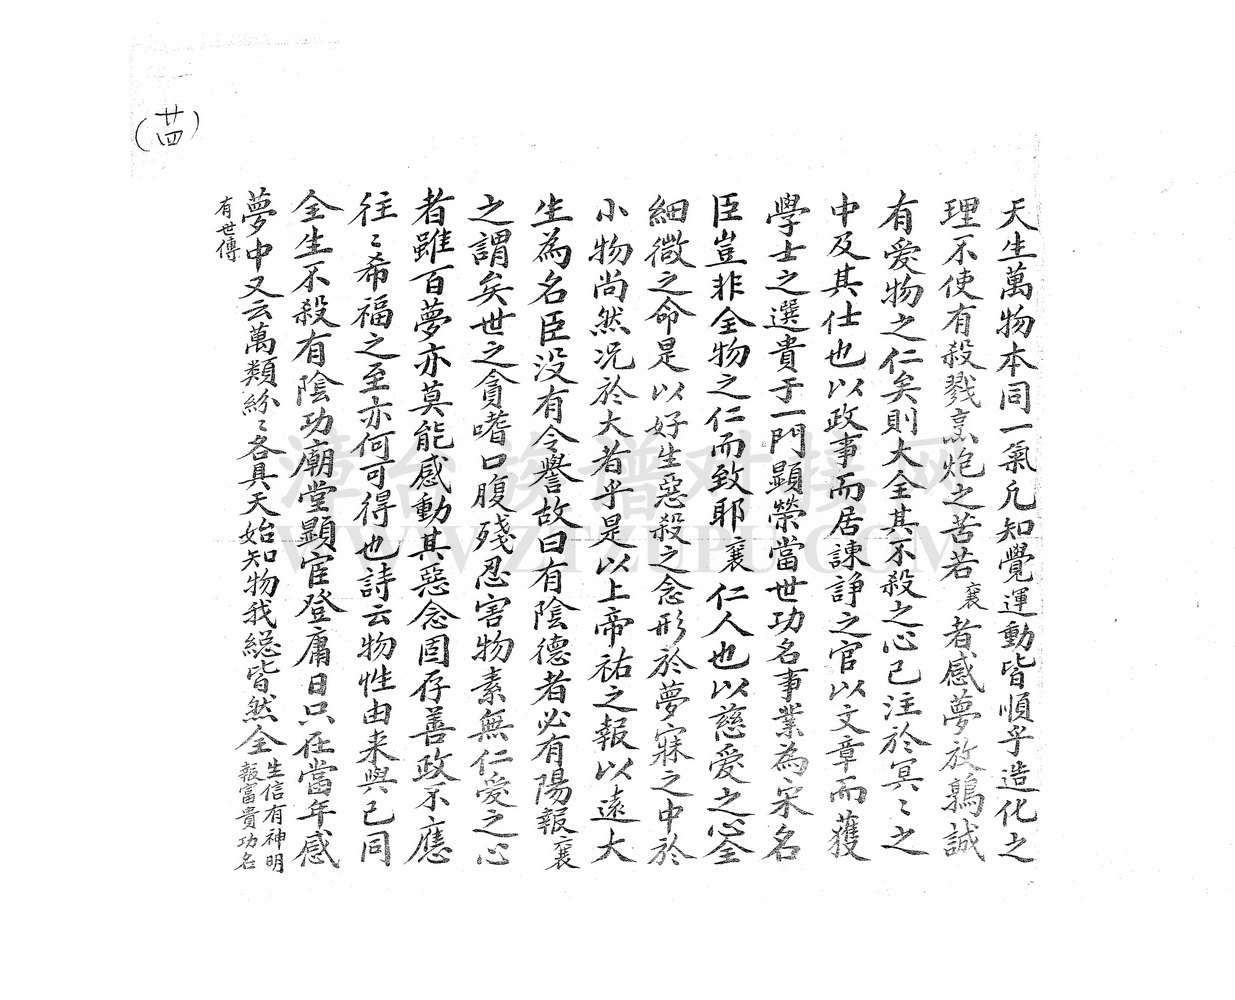 天生萬物本同一氣凡知覺運動皆順乎造化之
理不使有殺戮烹炮之苦若襄者感夢放鶉誠
有愛物之仁矣則大全其不殺之心已注於冥〻之
中及其仕也以政事而居諫諍之官以文章而獲
學士之選貴于一門顯榮當世功名事業為宋名
臣豈非全物之仁而致耶襄仁人也以慈愛之心全
細微之命是以好生惡殺之念形於夢寐之中於
小物尚然况於大者乎是以上帝祐之報以遠大
生為名臣没有令譽故曰有陰德者必有陽報襄
之謂矣世之貪嗜口腹殘忍害物素無仁愛之心
者雖百夢亦莫能感動其惡念固存善政不應
往〻希福之至亦何可得也詩云物性由来與已同
全生不殺有陰功廟堂顯宦登庸日只在當年感
夢中又云萬類紛〻各具天始知物我総皆然全生信有神明
報富貴功名
有世傳
(廿四)
漳台族谱对接网
WWW.ZTZUPU.COM